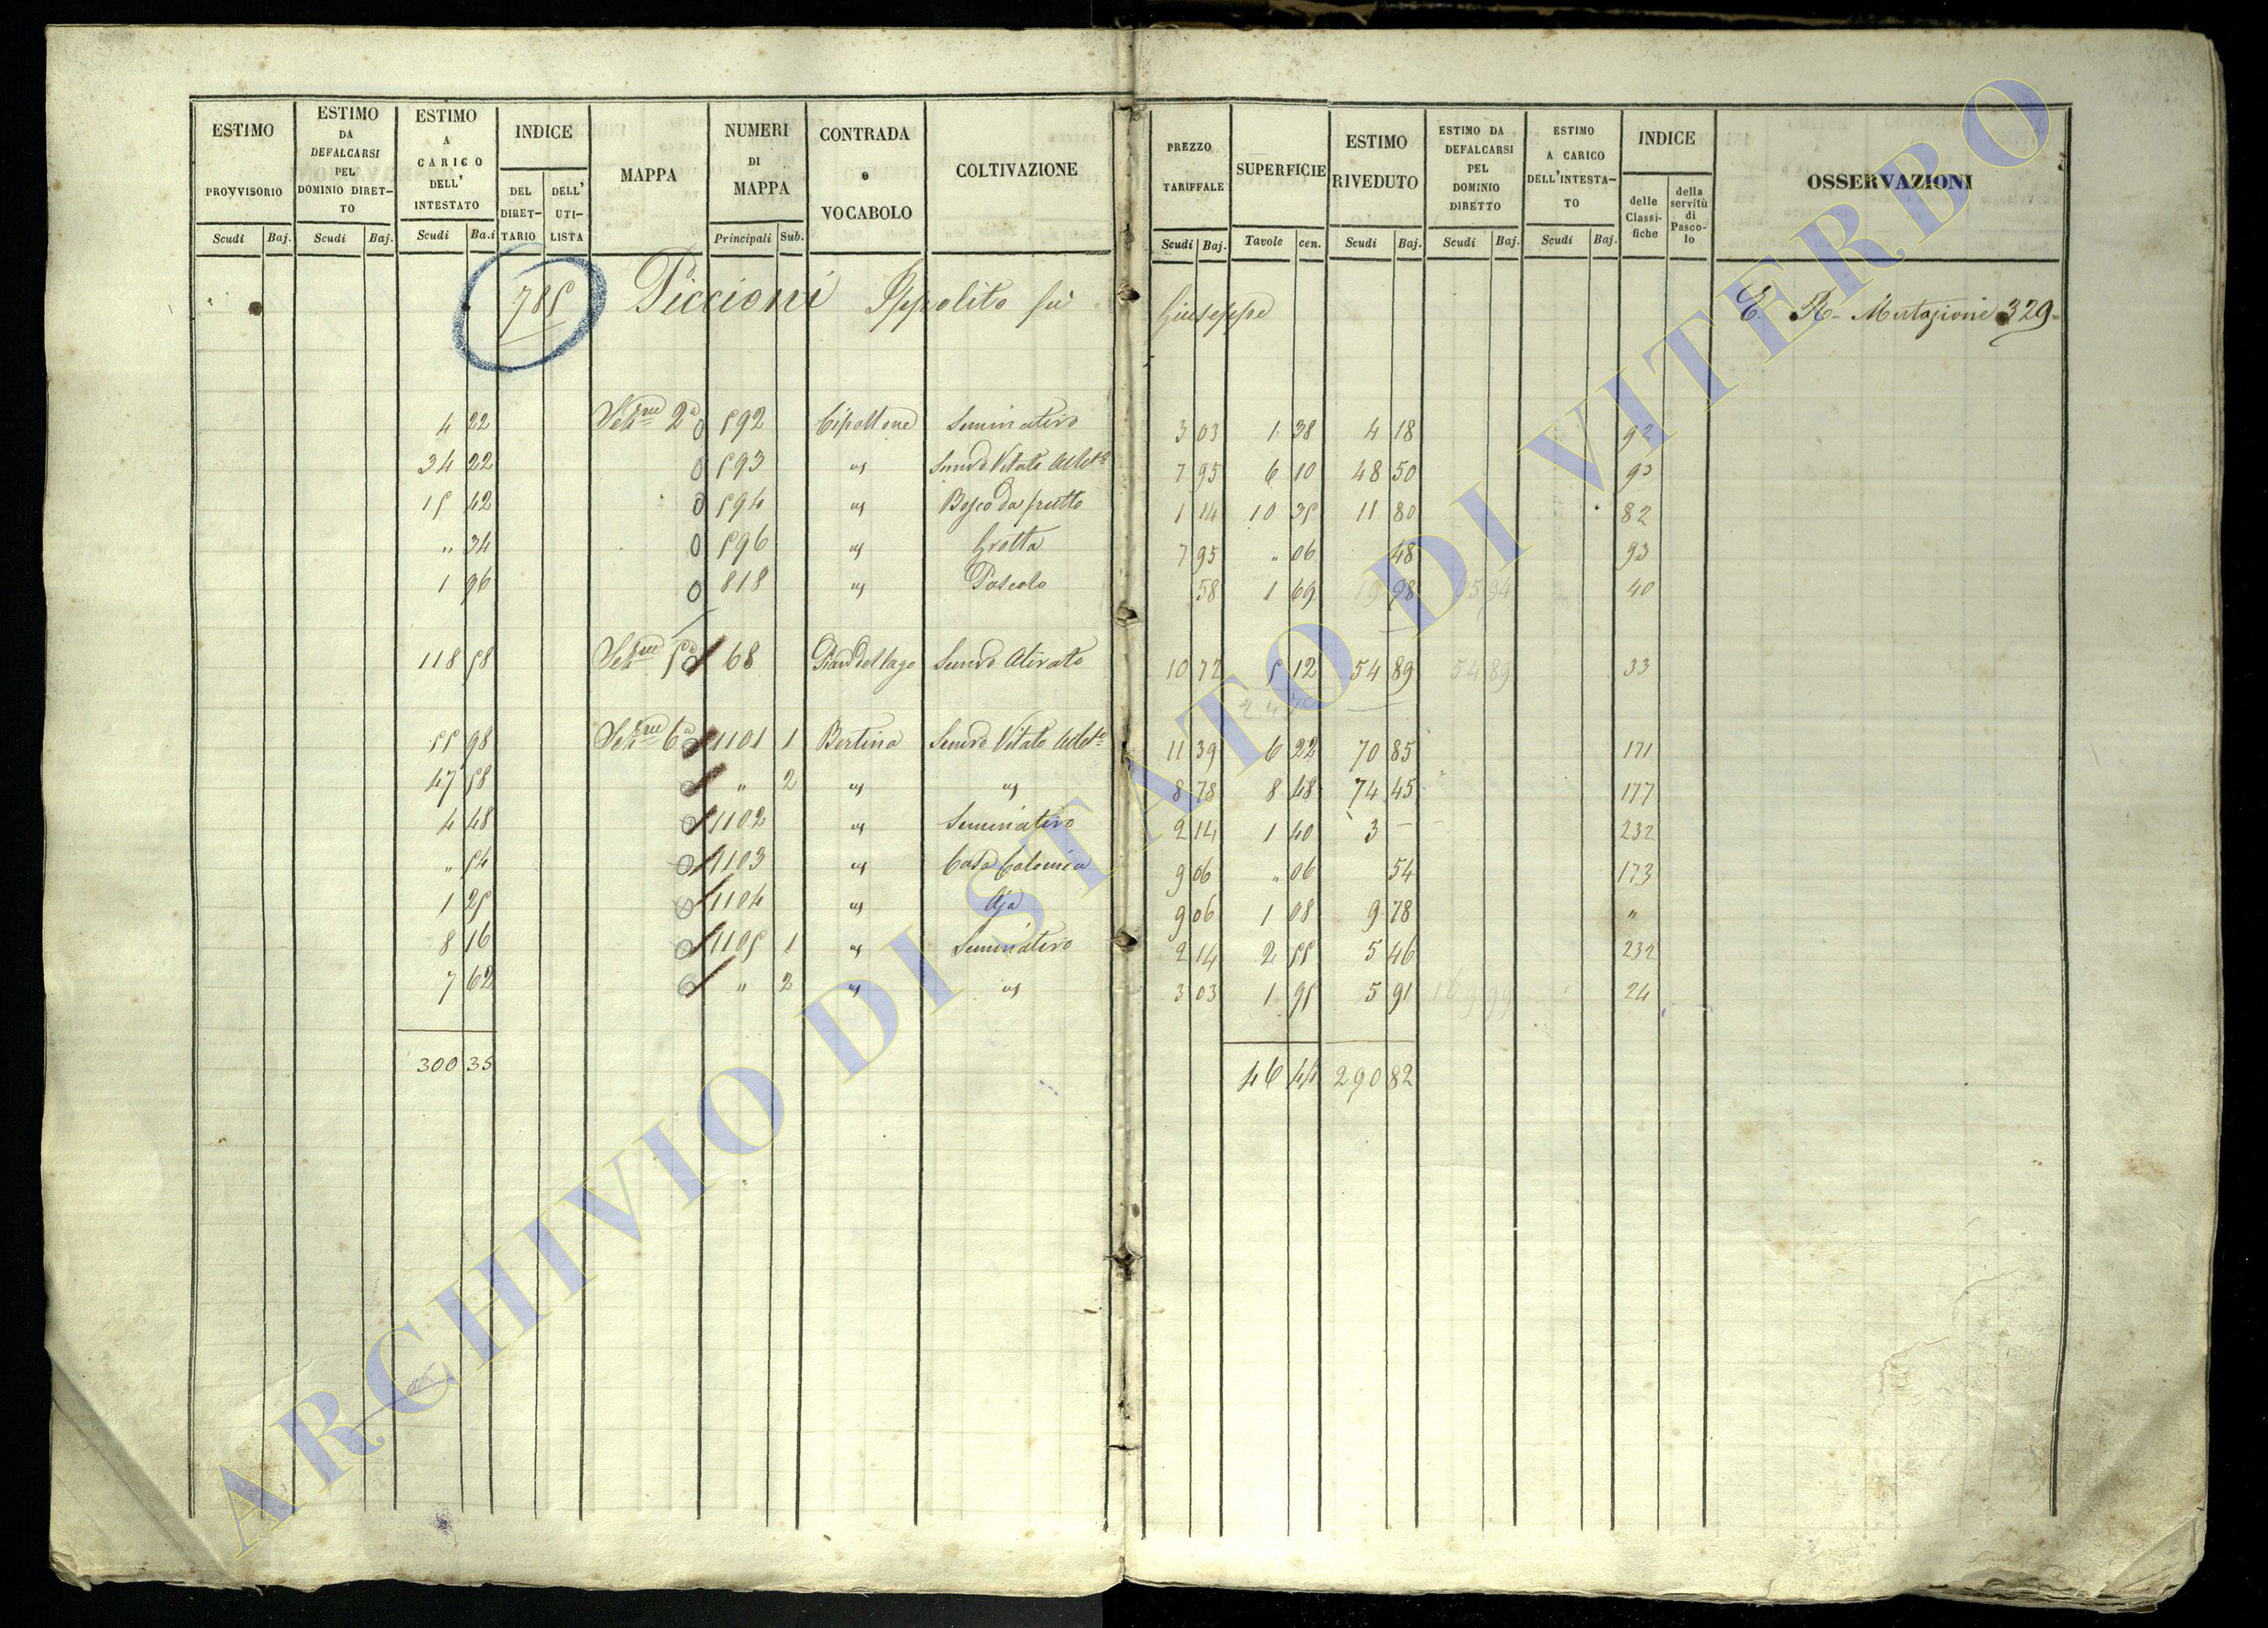 ESTIMO PROVVISORIO Scudi Baj.
ESTIMO DA DEFALCARSI PEL DOMINIO DIRETTO Scudi Baj.
ESTIMO A CARICO DELL' INTESTATO Scudi Ba.i
INDICE DEL DIRETTARIO DELL' UTILISTA
MAPPA
NUMERI DI MAPPA Principali Sub.
CONTRADA e VOCABOLO
COLTIVAZIONE
PREZZO TARIFFALE Scudi Baj.
SUPERFICIE Tavole cen.
ESTIMO RIVEDUTO Scudi Baj.
ESTIMO DA DEFALCARSI PEL DOMINIO DIRETTO Scudi Baj.
ESTIMO A CARICO DELL'INTESTATO Scudi Baj.
INDICE delle Classifiche della servitù di Pascolo
OSSERVAZIONI
785 Piccioni Ippolito fu Giuseppe E. R. Mutazione 329
4 22 Sez.ne 2a 592 Cipollone Seminativo 3 03 1 38 4 18 92
34 22 593 " Semvo Vitato 7 95 6 10 48 50 93
15 42 594 " Bosco da frutto 1 14 10 35 11 80 82
" 34 596 " Grotta 7 95 " 06 48 93
1 96 818 " Pascolo 58 1 69 98 40
118 58 Sez.ne 5a 68 Pian del lago Semvo Olivato 10 72 5 12 54 89 54 89 33
55 98 Sez.ne 6a 1101 1 Bertina Semvo Vitato 11 39 6 22 70 85 171
47 58 " 2 " " 8 78 8 48 74 45 177
4 48 1102 " Seminativo 2 14 1 40 3 – 232
" 54 1103 " Casa Colonica 9 06 " 06 54 173
1 25 1104 " Aja 9 06 1 08 9 78 "
8 16 1105 1 " Seminativo 2 14 2 55 5 46 232
7 62 " 2 " " 3 03 1 95 5 91 24
300 35 46 44 290 82
ARCHIVIO DI STATO DI VITERBO